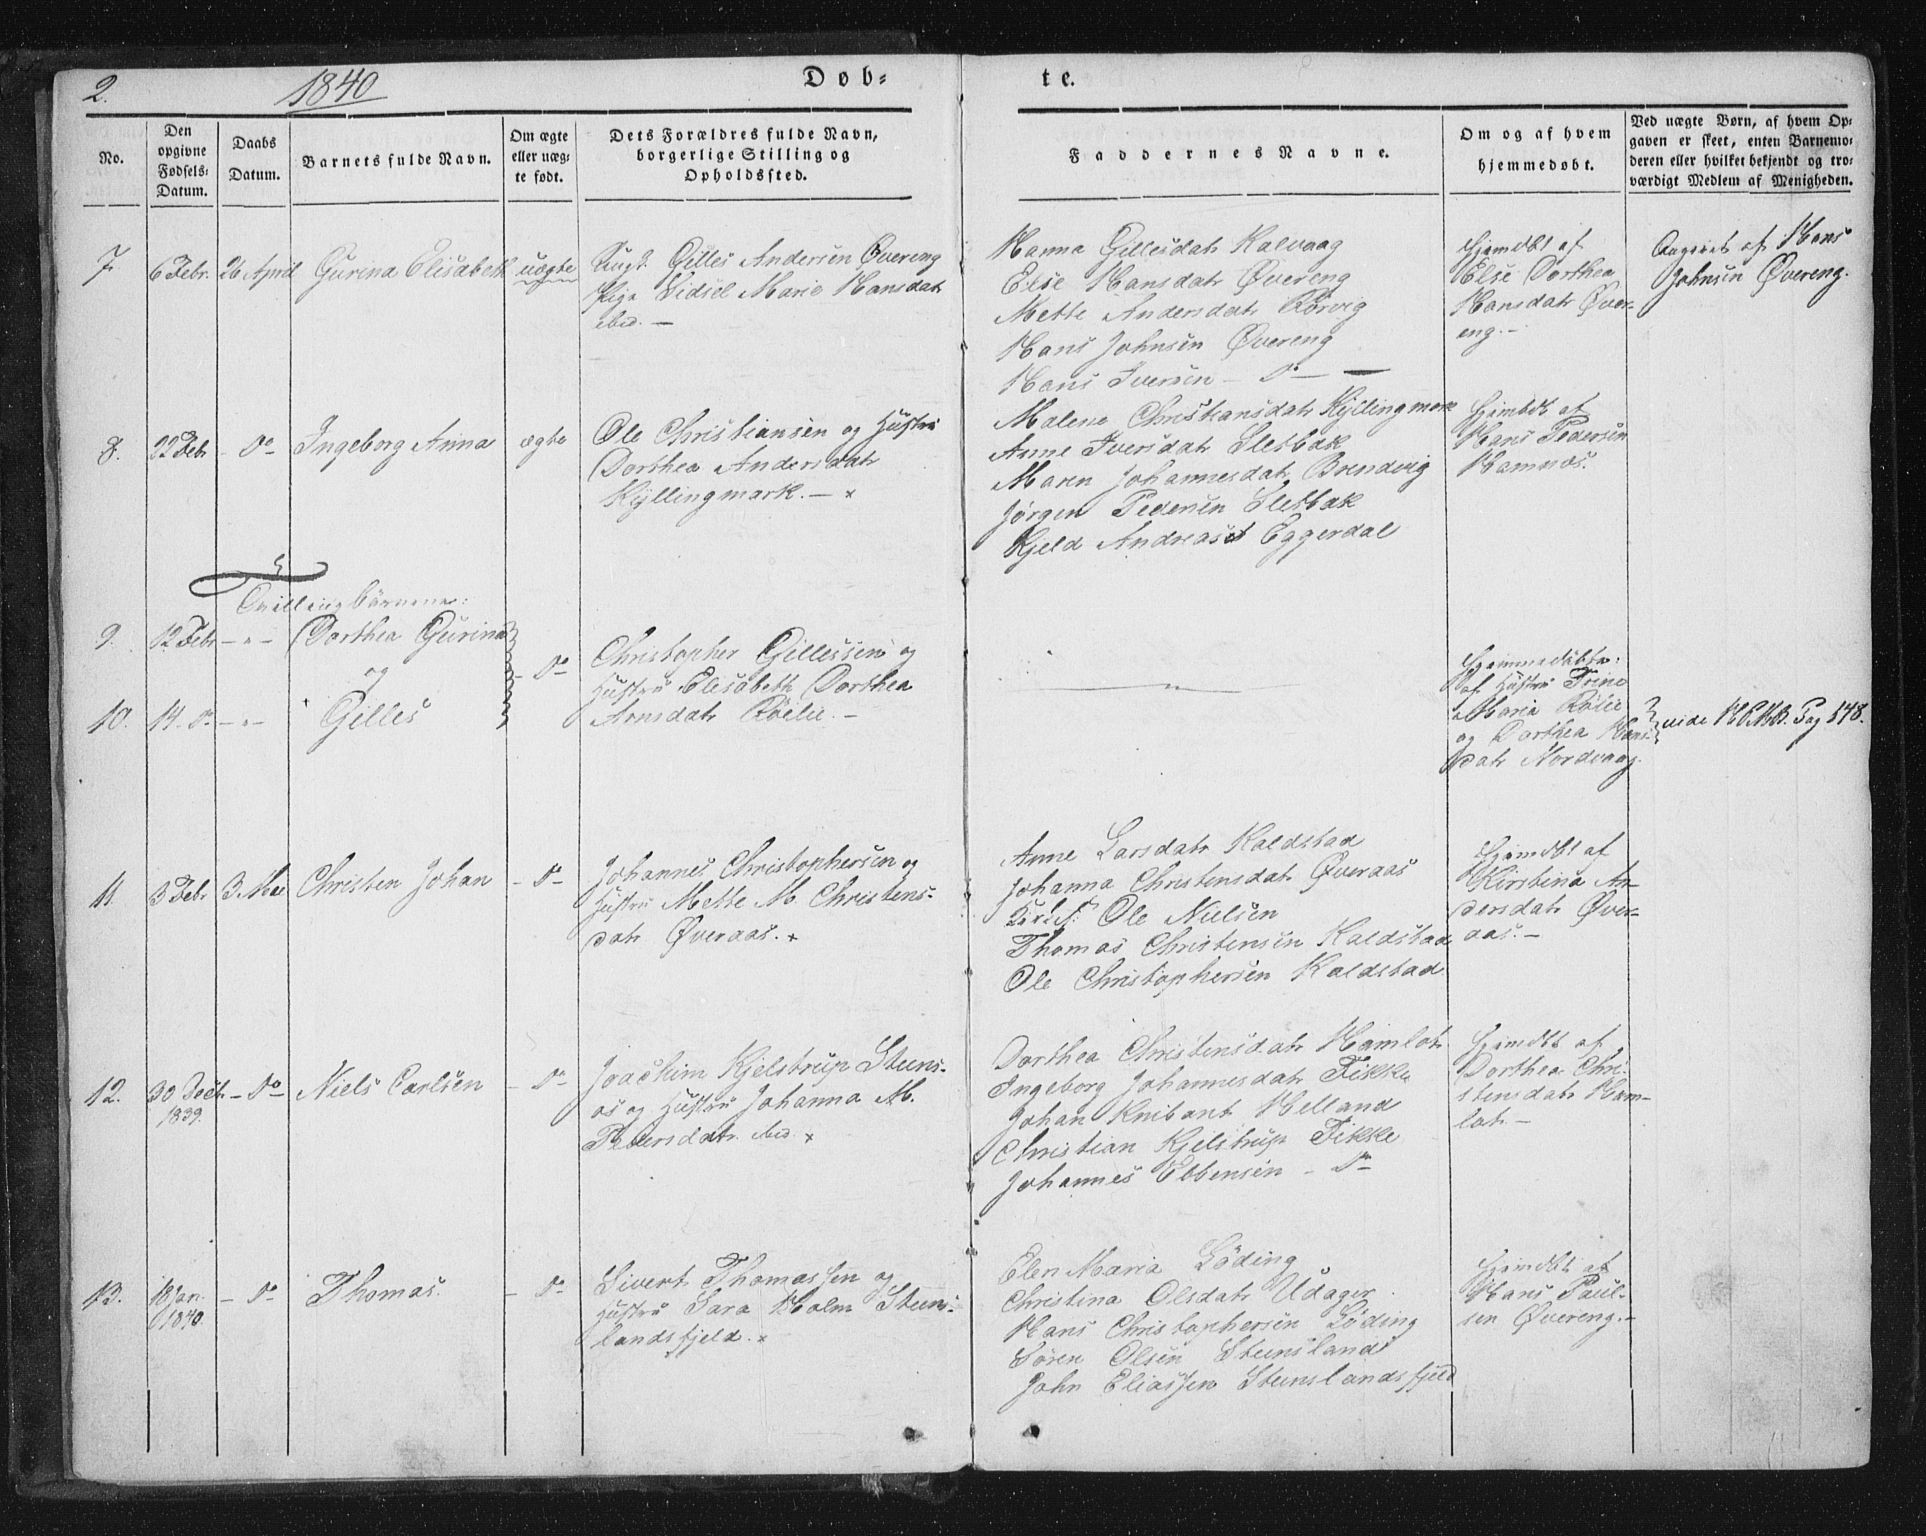 2.
1840
Døb-
te.
No.
Den opgivne Fødsels-Datum.
Daabs Datum.
Barnets fulde Navn.
Om ægte eller uæg-te født.
Dets Forældres fulde Navn, borgerlige Stilling og Opholdssted.
Faddernes Navne.
Om og af hvem hjemmedøbt.
Ved uægte Børn, af hvem Op-gaven er skeet, enten Barnemo-deren eller hvilket bekjendt og tro-værdigt Medlem af Menigheden.
7. 6 Febr. 26 April Gurina Elisabeth uægte
Ungk. Gilles Andersen Øvereng
Pige Sidsel Marie Hansdatr
ibid. —
Hanna Gillesdatr Kalvaag
Else Hansdatr Øvereng
Mette Andersdatr Rörvig
Hans Johnsen Øvereng
Hans Iversen — Do —
Hjemdbt af
Else Dorthea
Hansdatr Øver-
eng. —
Angivet af Hans
Johnsen Øvereng.
8. 22 Feb - Do Ingeborg Anna ægte
Ole Christiansen og Hustru
Dorthea Andersdatr
Kyllingmark. — x
Malene Christiansdatr Kyllingmark
Anne Iversdatr Sletbak
Maren Johannesdatr Brendvig
Jørgen Pedersen Sletbak
Kjeld Andreas Eggerdal
Hjemdbt af
Hans Pedersen
Hamnøs.
Tvillingbørnene:
9. 12 Febr - " - Dorthea Gurina
og
10. 14. Do - " - Gilles
- Do
Christopher Gillessen og
Hustru Elisabeth Dorthea
Arnsdatr Röelie. —
— " —
Hjemmedöbte:
af Hustru Trine
Maria Röelie
og Dorthea Hans-
datr Nordvaag.
vide Pag 548.
11. 3 Febr 3 Mai Christen Johan - Do -
Johannes Christophersen og
Hustru Mette M. Christens-
datr Øveraas. x
Anne Larsdatr Kaldstad
Johanna Christensdatr Øveraas
Ole Nielsen
Thomas Christensen Kaldstad
Ole Christophersen Kaldstad
Hjemdbt af
Kirstina An-
dersdatr Øver-
aas. —
12. 30 Decbr - Do Niels Carlsen - Do -
1839.
Joachim Kjelstrup Steens-
os og Hustru Johanna M.
Pedersdatr. ibid. x
Dorthea Christensdatr Hamlot
Ingeborg Johannesdatr Fikke
Johan Knibant Helland
Christian Kjelstrup Fikke
Johannes Ebbensen - Do
Hjemdbt af
Dorthea Chri-
stensdatr Ham-
lot —
13. 18 Jan. - Do Thomas. - Do
1840.
Sivert Thomassen og
Hustru Sara Holm Steens-
landsfjeld. x
Elen Maria Löding
Christina Olsdatr Udager
Hans Christophersen Löding
Sören Olsen Steensland
John Eliassen Steenslandsfjeld
Hjemdbt af
Hans Paul-
sen Øvereng. —